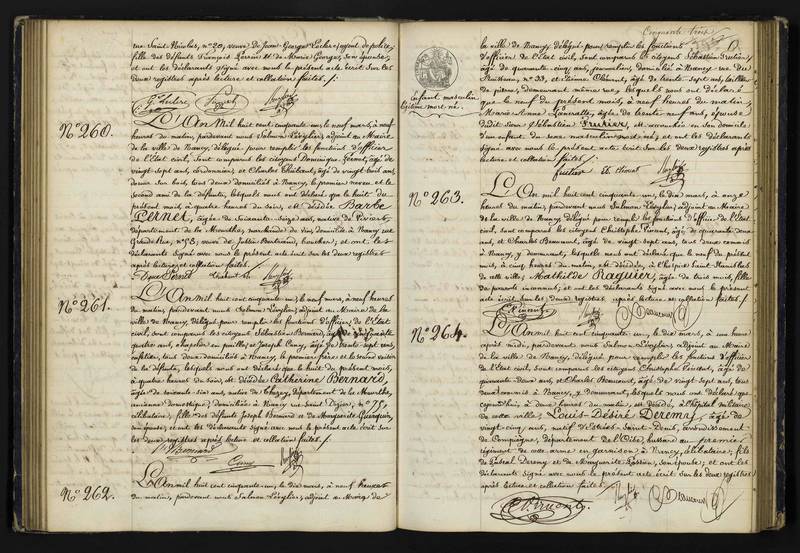 rue Saint-Nicolas, n° 20, veuve de Jean-Georges Leclerc, agent de police,
fille des défunts François Lorain et de Marie Georges, son épouse;
et ont les déclarants signé avec nous le présent acte écrit sur les
deux registres après lecture et collation faites./.
N° 260.
L'An Mil huit cent cinquante-un, le neuf mars, à neuf
heures du matin, pardevant nous Salmon-Léviglier, adjoint au Maire
de la ville de Nancy, délégué pour remplir les fonctions d'officier
de l'Etat civil, sont comparus les citoyens Dominique, âgé de
vingt-sept ans, cordonnier, et Charles, âgé de vingt-huit ans,
tous deux domiciliés à Nancy, le premier neveu et le
second ami de la défunte, lesquels nous ont déclaré que le huit du
présent mois, à quatre heures du soir, est décédée Barbe
Pernet, âgée de soixante-seize ans, native de
département de la Meurthe, marchande de vin, domiciliée à Nancy rue
n° 53, veuve de Bertrand, boucher; et ont les
déclarants signé avec nous le présent acte écrit sur les deux registres
après lecture et collation faites./.
N° 261.
L'An mil huit cent cinquante-un, le neuf mars, à neuf heures
du matin, pardevant nous Salmon-Léviglier, adjoint au Maire de la
ville de Nancy, délégué pour remplir les fonctions d'officier de l'Etat
civil, sont comparus les citoyens Sébastien Bernard, âgé de cinquante
quatre ans, et Joseph Cuny, âgé de trente-sept ans,
tous deux domiciliés à Nancy, le premier frère et le second voisin
de la défunte, lesquels nous ont déclaré que le huit du présent mois,
à quatre heures du soir, est décédée Catherine Bernard,
âgée de soixante-six ans, native de département de la Meurthe,
ancienne domestique, domiciliée à Nancy rue Saint Dizier, n° 75,
célibataire, fille des défunts Joseph Bernard et de Marguerite
son épouse; et ont les déclarants signé avec nous le présent acte écrit sur
les deux registres après lecture et collation faites./.
Bernard
Cuny
N° 262.
L'An mil huit cent cinquante-un, le dix mars, à neuf heures
du matin, pardevant nous Salmon-Léviglier, adjoint au Maire de
Cinquante trois
la ville de Nancy, délégué pour remplir les fonctions
d'officier de l'Etat civil, sont comparus les citoyens Sébastien Frutier,
âgé de quarante-cinq ans, journalier, domicilié à Nancy rue des
n° 33, et Etienne, âgé de trente-sept ans, tailleur
de pierres, demeurant même rue, lesquels nous ont déclaré
que le neuf du présent mois, à neuf heures du matin,
Marie-Anne, âgée de trente-neuf ans, épouse
dudit sieur Sébastien Frutier, est accouchée en son domicile
d'un enfant du sexe masculin mort-né; et ont les déclarants
signé avec nous le présent acte écrit sur les deux registres après
lecture et collation faites./.
Enfant masculin
mort-né.
N° 263.
L'An mil huit cent cinquante-un, le dix mars, à onze
heures du matin, pardevant nous Salmon-Léviglier, adjoint au Maire
de la ville de Nancy délégué pour remplir les fonctions d'officier de l'Etat
civil, sont comparus les citoyens Christophe, âgé de quarante-deux
ans, et Charles Beaucourt, âgé de vingt-sept ans, tous deux commis
à Nancy, y demeurant, lesquels nous ont déclaré que le neuf du présent
mois, à cinq heures du matin, est décédée, à l'hospice Saint Stanislas
de cette ville, Mathilde Raquier, âgée de trois mois, fille
de parents inconnus; et ont les déclarants signé avec nous le présent
acte écrit sur les deux registres après lecture et collation faites./.
N° 264.
L'An mil huit cent cinquante-un, le dix mars, à une heure
après midi, pardevant nous Salmon-Léviglier, adjoint au Maire
de la ville de Nancy, délégué pour remplir les fonctions d'officier
de l'Etat civil, sont comparus les citoyens Christophe, âgé de
quarante-deux ans, et Charles Beaucourt, âgé de vingt-sept ans, tous
deux commis à Nancy, y demeurant, lesquels nous ont déclaré que
à deux heures du matin, est décédé, à l'hôpital militaire
de cette ville, Louis-Désiré Deremy, âgé de
vingt-cinq ans, natif d'Estrées-Saint-Denis, arrondissement
de Compiègne, département de l'Oise, hussard au premier
régiment de cette arme en garnison à Nancy, célibataire, fils
de Deremy et de Marguerite, son épouse; et ont les
déclarants signé avec nous le présent acte écrit sur les deux registres
après lecture et collation faites./.